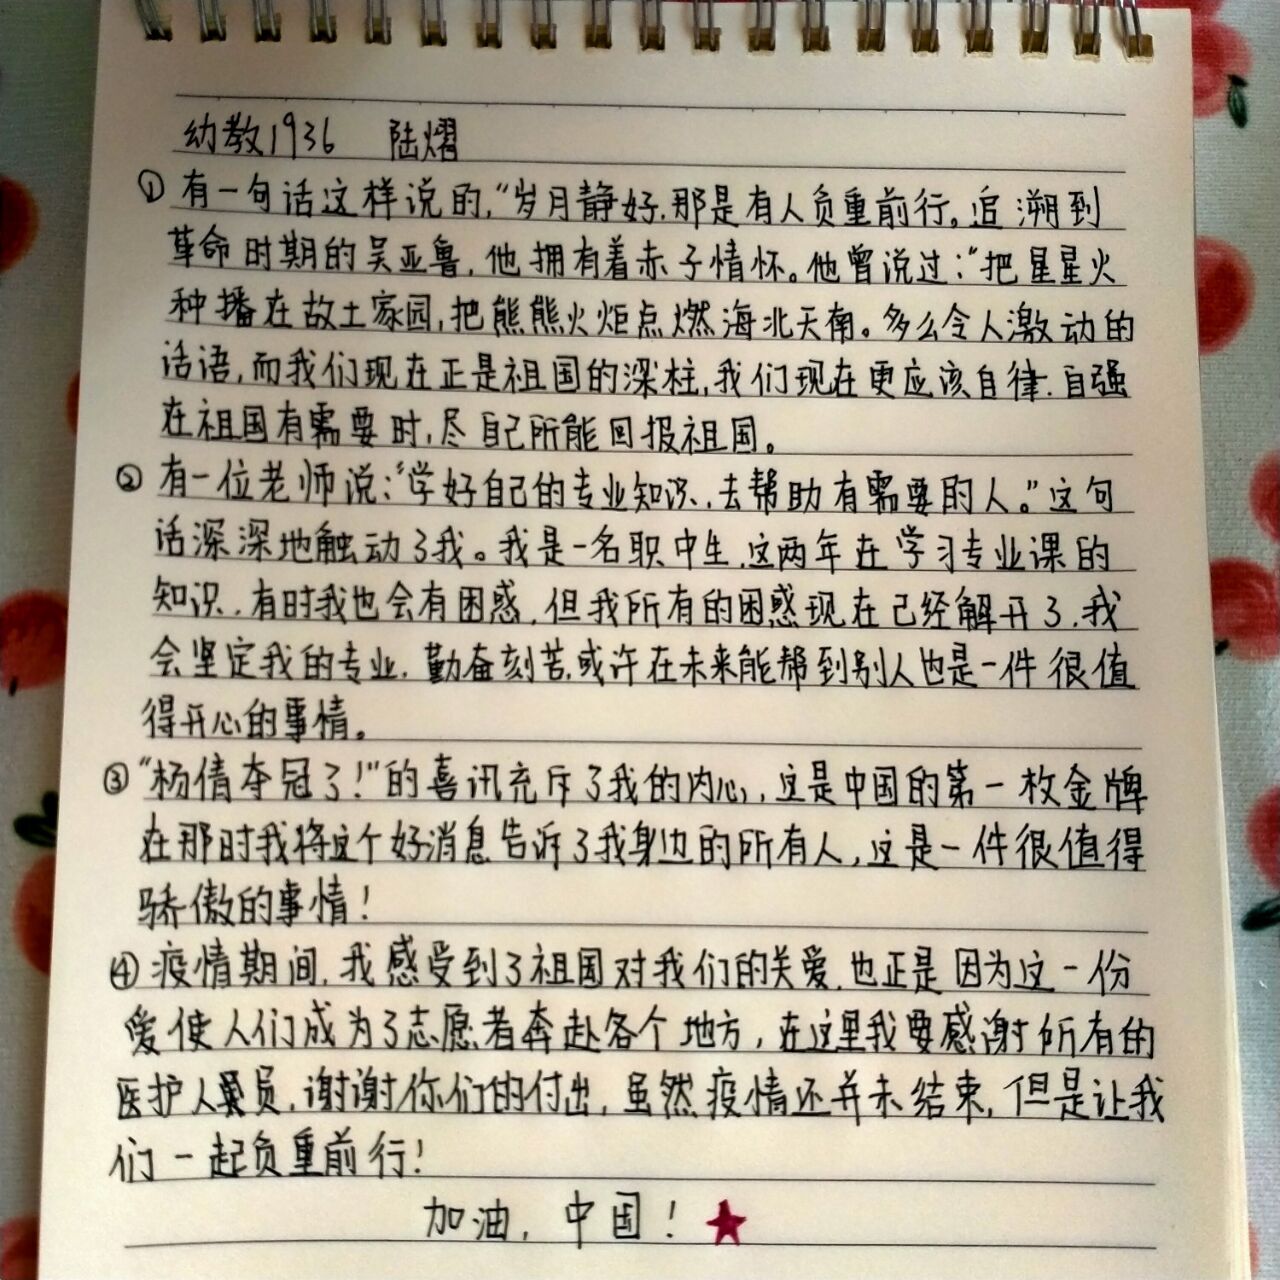 幼教1936 陆熠
① 有一句话这样说的,“岁月静好,那是有人负重前行。追溯到
革命时期的吴亚鲁,他拥有着赤子情怀。他曾说过:“把星星火
种播在故土家园,把熊熊火炬点燃海北天南。多么令人激动的
话语,而我们现在正是祖国的深柱,我们现在更应该自律.自强
在祖国有需要时,尽自己所能回报祖国。
② 有一位老师说:“学好自己的专业知识,去帮助有需要的人。”这句
话深深地触动了我。我是一名职中生,这两年在学习专业课的
知识,有时我也会有困惑,但我所有的困惑现在已经解开了,我
会坚定我的专业,勤奋刻苦,或许在未来能帮到别人也是一件很值
得开心的事情。
③ “杨倩夺冠了!”的喜讯充斥了我的内心,这是中国的第一枚金牌
在那时我将这个好消息告诉了我身边的所有人,这是一件很值得
骄傲的事情!
④ 疫情期间,我感受到了祖国对我们的关爱,也正是因为这一份
爱使人们成为了志愿者奔赴各个地方,在这里我要感谢所有的
医护人员,谢谢你们的付出,虽然疫情还并未结束,但是让我
们一起负重前行!
加油,中国!